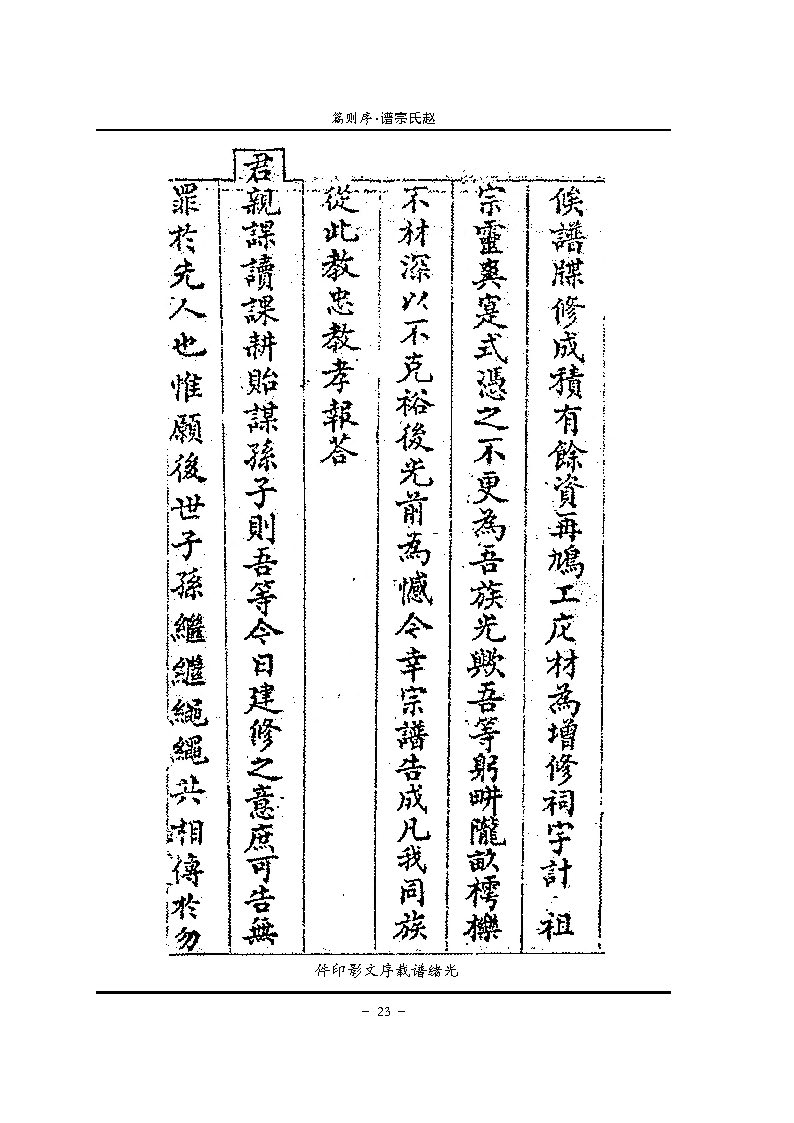 篇则序·谱宗氏赵
俟譜牒修成積有餘資再鳩工庀材為增修祠宇計 祖
宗靈爽寔式憑之不更為吾族光歟吾等躬畊隴畝樗櫟
不材深以不克裕後光前為憾今幸宗譜告成凡我同族
從此教忠教孝報答
君親課讀課耕貽謀孫子則吾等今日建修之意庶可告無
罪於先人也惟願後世子孫繼繼繩繩共相傳於勿
件印影文序载谱绪光
- 23 -